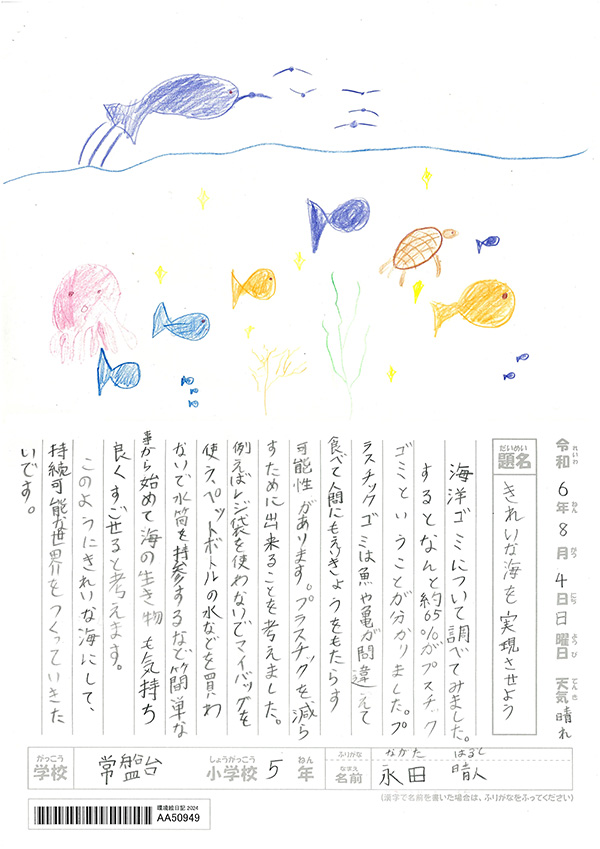 令和6年8月4日日曜日 天気 晴れ
れいわ ねん がつ にち ようび てんき
だいめい
題名
きれいな海を実現させよう
海洋ゴミについて調べてみました。
するとなんと約65%がプスチック
ゴミということが分かりました。プ
ラスチックゴミは魚や亀が間違えて
食べて人間にもえいきょうをもたらす
可能性があります。プラスチックを減ら
すために出来ることを考えました。
例えばレジ袋を使わないでマイバッグを
使う、ペットボトルの水などを買わ
ないで水筒を持参するなど簡単な
事から始めて海の生き物も気持ち
良くすごせると考えます。
このようにきれいな海にして、
持続可能な世界をつくっていきた
いです。
がっこう しょうがっこう ねん
学校 常盤台 小学校 5年
ふりがな ながた はると
なまえ
名前 永田 晴人
(漢字で名前を書いた場合は、ふりがなをふってください)
環境絵日記2024
AA50949